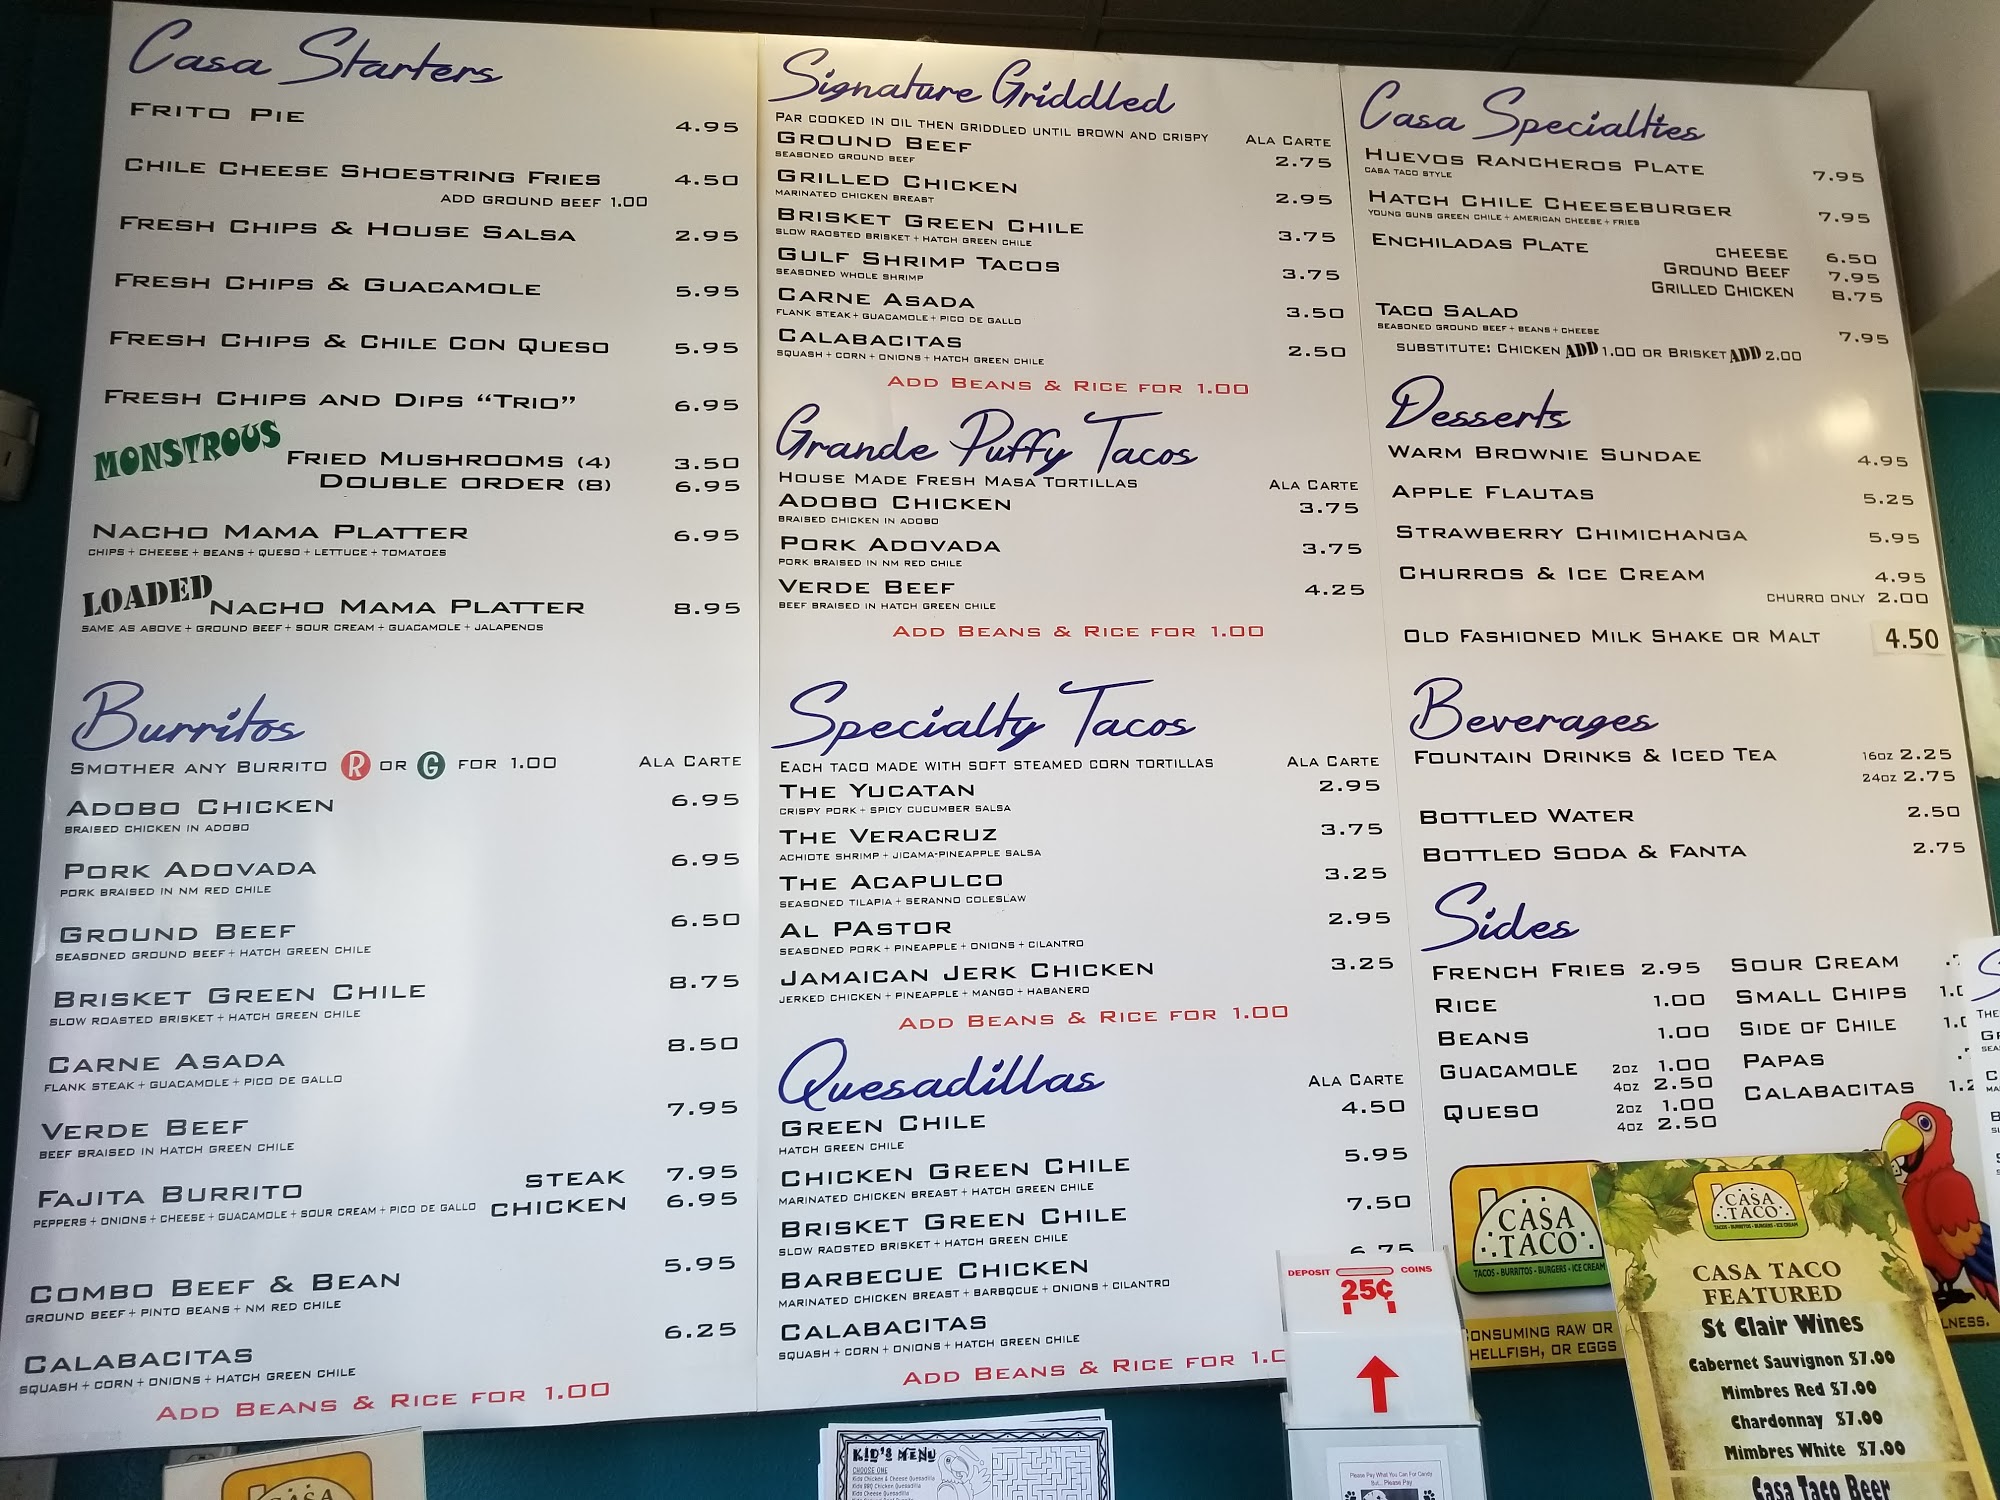 Casa Starters
FRITO PIE 4.95
CHILE CHEESE SHOESTRING FRIES 4.50
ADD GROUND BEEF 1.00
FRESH CHIPS & HOUSE SALSA 2.95
FRESH CHIPS & GUACAMOLE 5.95
FRESH CHIPS & CHILE CON QUESO 5.95
FRESH CHIPS AND DIPS “TRIO” 6.95
MONSTROUS FRIED MUSHROOMS (4) 3.50
DOUBLE ORDER (8) 6.95
NACHO MAMA PLATTER 6.95
CHIPS + CHEESE + BEANS + QUESO + LETTUCE + TOMATOES
LOADED NACHO MAMA PLATTER 8.95
SAME AS ABOVE + GROUND BEEF + SOUR CREAM + GUACAMOLE + JALAPENOS
Burritos
SMOTHER ANY BURRITO R OR G FOR 1.00 ALA CARTE
ADOBO CHICKEN 6.95
BRAISED CHICKEN IN ADOBO
PORK ADOVADA 6.95
PORK BRAISED IN NM RED CHILE
GROUND BEEF 6.50
SEASONED GROUND BEEF + HATCH GREEN CHILE
BRISKET GREEN CHILE 8.75
SLOW ROASTED BRISKET + HATCH GREEN CHILE
CARNE ASADA 8.50
FLANK STEAK + GUACAMOLE + PICO DE GALLO
VERDE BEEF 7.95
BEEF BRAISED IN HATCH GREEN CHILE
FAJITA BURRITO STEAK 7.95
PEPPERS + ONIONS + CHEESE + GUACAMOLE + SOUR CREAM + PICO DE GALLO CHICKEN 6.95
COMBO BEEF & BEAN 5.95
GROUND BEEF + PINTO BEANS + NM RED CHILE
CALABACITAS 6.25
SQUASH + CORN + ONIONS + HATCH GREEN CHILE
ADD BEANS & RICE FOR 1.00
Signature Griddled
PAR COOKED IN OIL THEN GRIDDLED UNTIL BROWN AND CRISPY ALA CARTE
GROUND BEEF 2.75
SEASONED GROUND BEEF
GRILLED CHICKEN 2.95
MARINATED CHICKEN BREAST
BRISKET GREEN CHILE 3.75
SLOW ROASTED BRISKET + HATCH GREEN CHILE
GULF SHRIMP TACOS 3.75
SEASONED WHOLE SHRIMP
CARNE ASADA 3.50
FLANK STEAK + GUACAMOLE + PICO DE GALLO
CALABACITAS 2.50
SQUASH + CORN + ONIONS + HATCH GREEN CHILE
ADD BEANS & RICE FOR 1.00
Grande Puffy Tacos
HOUSE MADE FRESH MASA TORTILLAS ALA CARTE
ADOBO CHICKEN 3.75
BRAISED CHICKEN IN ADOBO
PORK ADOVADA 3.75
PORK BRAISED IN NM RED CHILE
VERDE BEEF 4.25
BEEF BRAISED IN HATCH GREEN CHILE
ADD BEANS & RICE FOR 1.00
Specialty Tacos
EACH TACO MADE WITH SOFT STEAMED CORN TORTILLAS ALA CARTE
THE YUCATAN 2.95
CRISPY PORK + SPICY CUCUMBER SALSA
THE VERACRUZ 3.75
ACHIOTE SHRIMP + JICAMA-PINEAPPLE SALSA
THE ACAPULCO 3.25
SEASONED TILAPIA + SERANNO COLESLAW
AL PASTOR 2.95
SEASONED PORK + PINEAPPLE + ONIONS + CILANTRO
JAMAICAN JERK CHICKEN 3.25
JERKED CHICKEN + PINEAPPLE + MANGO + HABANERO
ADD BEANS & RICE FOR 1.00
Quesadillas
ALA CARTE
GREEN CHILE 4.50
HATCH GREEN CHILE
CHICKEN GREEN CHILE 5.95
MARINATED CHICKEN BREAST + HATCH GREEN CHILE
BRISKET GREEN CHILE 7.50
SLOW ROASTED BRISKET + HATCH GREEN CHILE
BARBECUE CHICKEN 6.75
MARINATED CHICKEN BREAST + BARBQCUE + ONIONS + CILANTRO
CALABACITAS
SQUASH + CORN + ONIONS + HATCH GREEN CHILE
ADD BEANS & RICE FOR
Casa Specialties
HUEVOS RANCHEROS PLATE 7.95
CASA TACO STYLE
HATCH CHILE CHEESEBURGER 7.95
YOUNG GUNS GREEN CHILE + AMERICAN CHEESE + FRIES
ENCHILADAS PLATE CHEESE 6.50
GROUND BEEF 7.95
GRILLED CHICKEN 8.75
TACO SALAD 7.95
SEASONED GROUND BEEF + BEANS + CHEESE
SUBSTITUTE: CHICKEN ADD 1.00 OR BRISKET ADD 2.00
Desserts
WARM BROWNIE SUNDAE 4.95
APPLE FLAUTAS 5.25
STRAWBERRY CHIMICHANGA 5.95
CHURROS & ICE CREAM 4.95
CHURRO ONLY 2.00
OLD FASHIONED MILK SHAKE OR MALT 4.50
Beverages
FOUNTAIN DRINKS & ICED TEA 16OZ 2.25
24OZ 2.75
BOTTLED WATER 2.50
BOTTLED SODA & FANTA 2.75
Sides
FRENCH FRIES 2.95 SOUR CREAM
RICE 1.00 SMALL CHIPS
BEANS 1.00 SIDE OF CHILE
GUACAMOLE 2OZ 1.00 PAPAS
4OZ 2.50 CALABACITAS
QUESO 2OZ 1.00
4OZ 2.50
CASA TACO
TACOS - BURRITOS - BURGERS - ICE CREAM
ONSUMING RAW OR
HELLFISH, OR EGGS
LNESS.
CASA TACO
TACOS - BURRITOS - BURGERS - ICE CREAM
CASA TACO
FEATURED
St Clair Wines
Cabernet Sauvignon $7.00
Mimbres Red $7.00
Chardonnay $7.00
Mimbres White $7.00
Casa Taco Beer
DEPOSIT COINS
25¢
Please Pay What You Can For Candy
But... Please Pay
KID'S MENU
CHOOSE ONE
Kids Chicken & Cheese Quesadilla
Kids BBQ Chicken Quesadilla
Kids Cheese Quesadilla
CASA